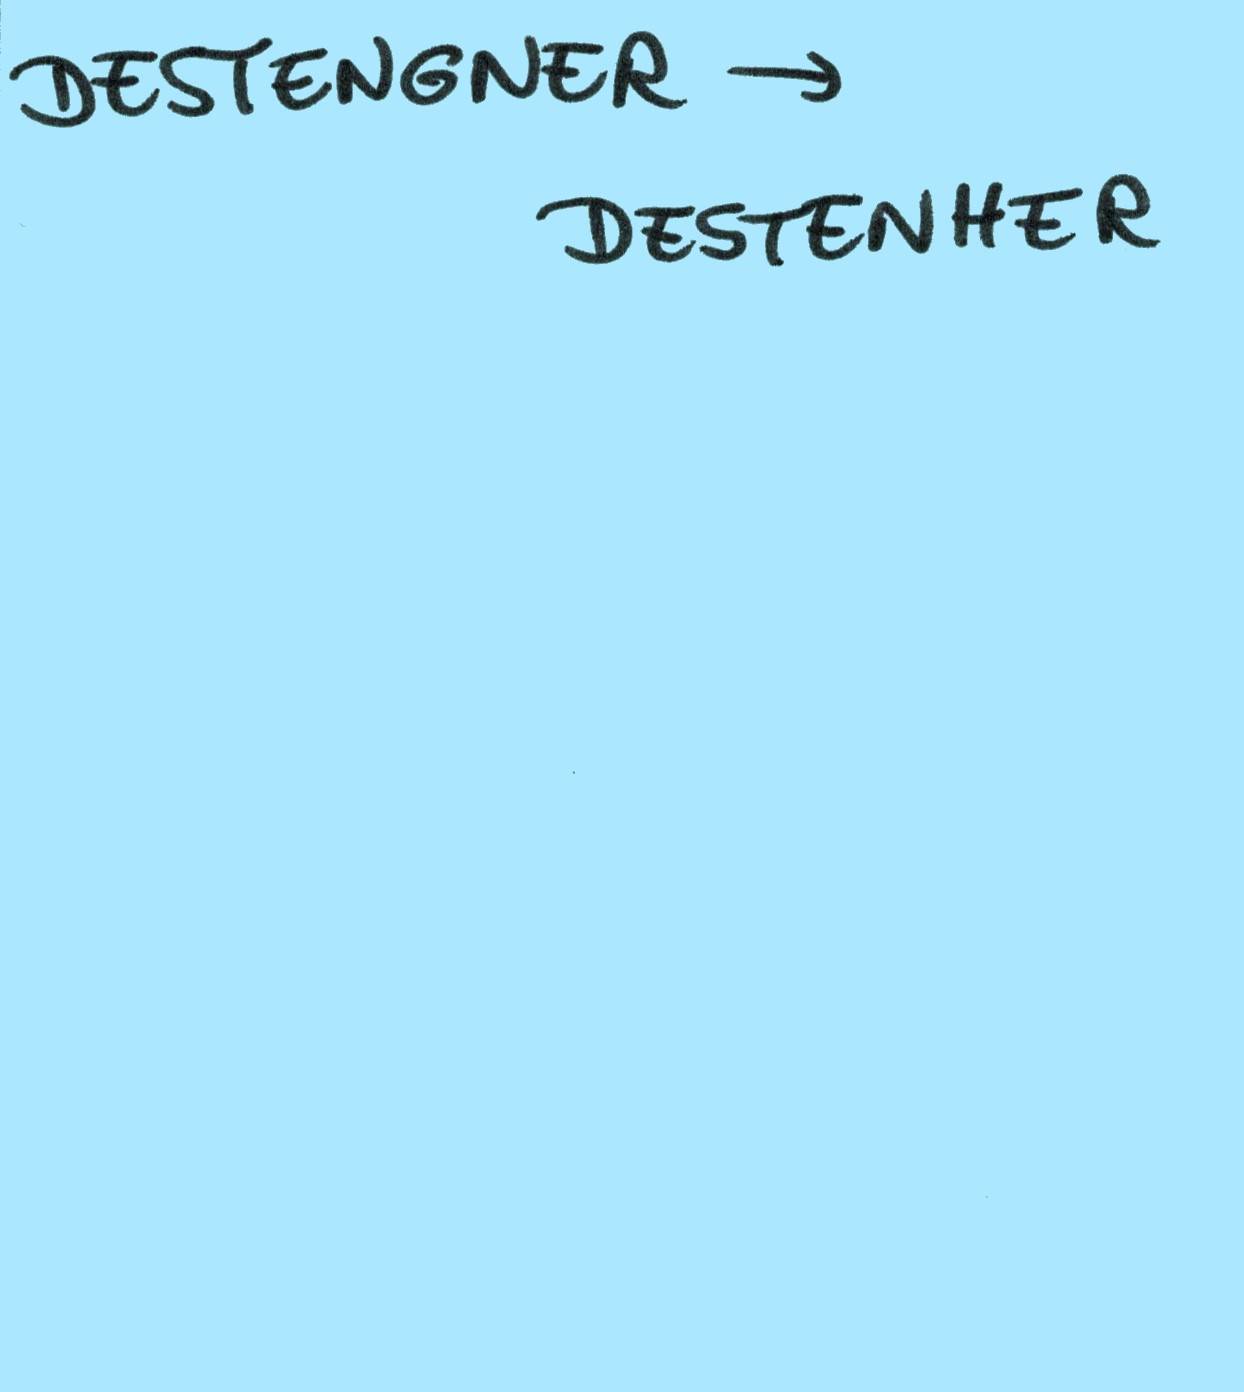 DESTENGNER →
DESTENHER